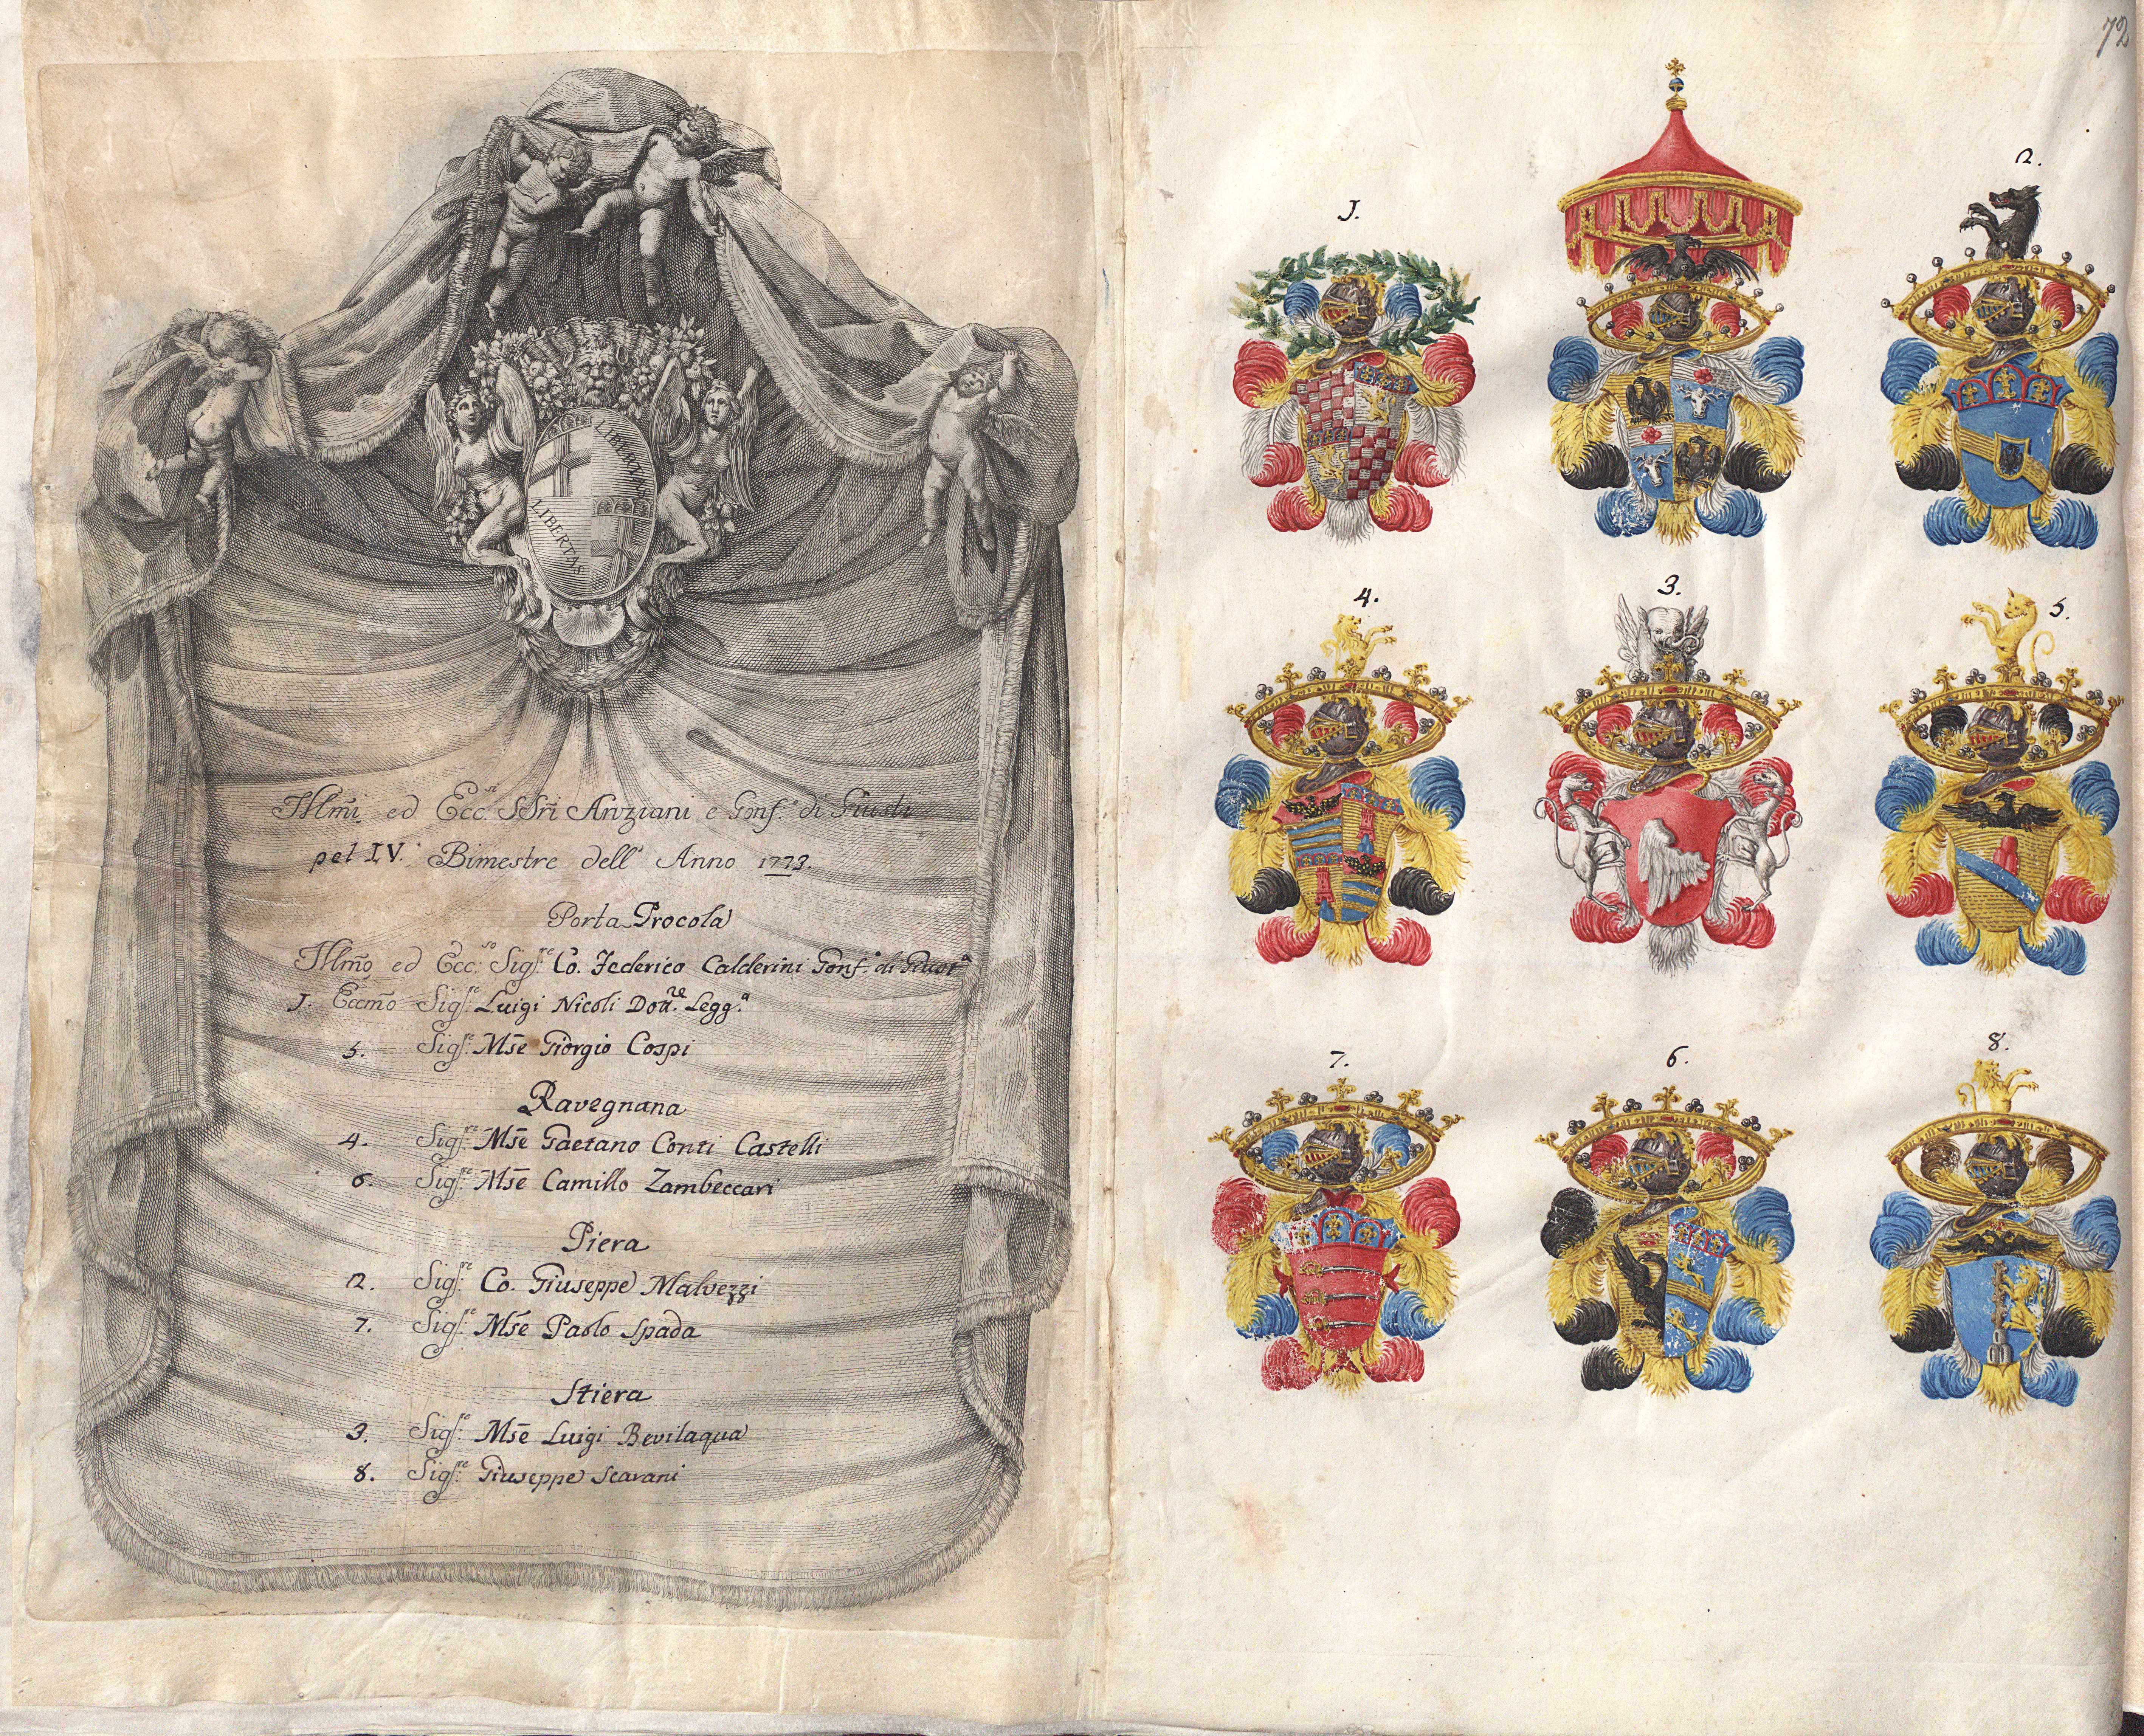 LIBERTAS
LIBERTAS
Illm̃i ed Ecc.si SSri Anziani e Gonf.e di Giusti
pel IV. Bimestre dell' Anno 1773.
Porta Procola
Illm̃o ed Ecc:so Sig.re Co. Federico Calderini Gonf.e di Giust.a
J. Eccm̃o Sig.re Luigi Nicoli Dott.re Legg.a
5. Sig.re Mse Giorgio Cospi
Ravegnana
4. Sig.re Mse Gaetano Conti Castelli
6. Sig.re Mse Camillo Zambeccari
Piera
2. Sig.re Co. Giuseppe Malvezzi
7. Sig.re Mse Paolo Spada
Stiera
3. Sig.re Mse Luigi Bevilaqua
8. Sig.re Giuseppe Scarani
72
J.
2.
4.
3.
5.
7.
6.
8.